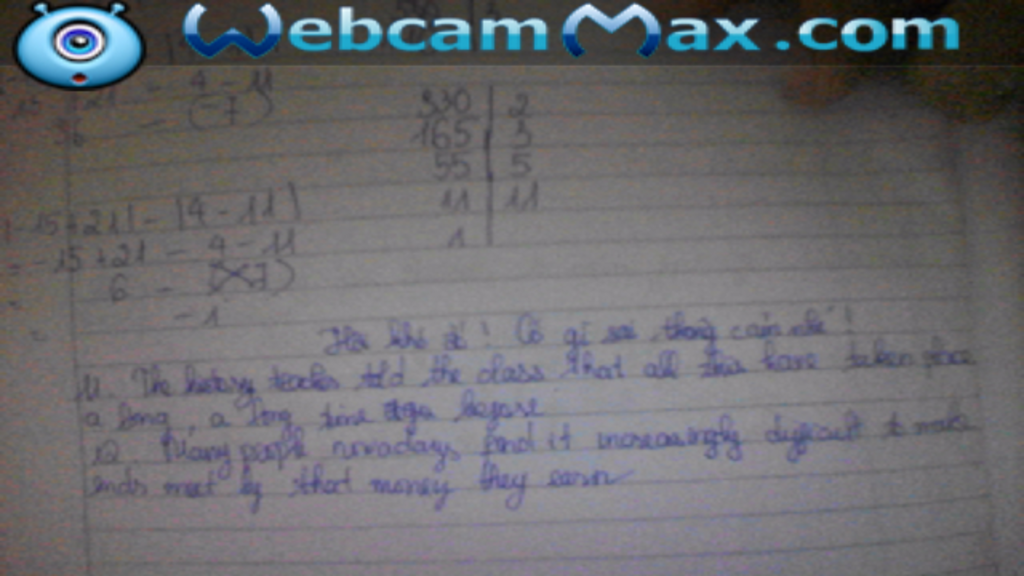 WebcamMax.com
4 - 11
(-7)
330 | 2
165 | 3
55 | 5
11 | 11
1
|-15+21| - |4-11|
= -15+21 - 4-11
6 -
- 1
Hơi khó đó! Có gì sai, thông cảm nhé!
11. The history teacher told the class that all this have taken place
a long, a long time ago before
12. Many people nowadays find it increasingly difficult to make
ends meet by that money they earn